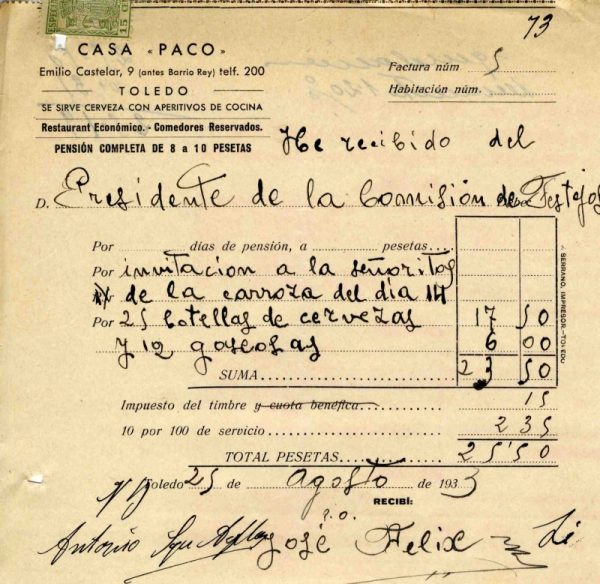 73
ESPE
15 C
CASA «PACO»
Emilio Castelar, 9 (antes Barrio Rey) telf. 200
TOLEDO
SE SIRVE CERVEZA CON APERITIVOS DE COCINA
Restaurant Económico. - Comedores Reservados.
PENSIÓN COMPLETA DE 8 a 10 PESETAS
Factura núm 5
Habitación núm.
He recibido del
D. Presidente de la Comisión de Festejos
Por días de pensión, a pesetas
Por invitacion a la señoritas
de la carroza del dia 14
Por 25 botellas de cervezas 17 50
y 12 gaseosas 6 00
SUMA 23 50
Impuesto del timbre y cuota benéfica 15
10 por 100 de servicio 2 35
TOTAL PESETAS 25'50
Toledo 25 de Agosto de 1933
RECIBÍ:
P.O.
Antonio
José Felix
SERRANO, IMPRESOR.-TOLEDO